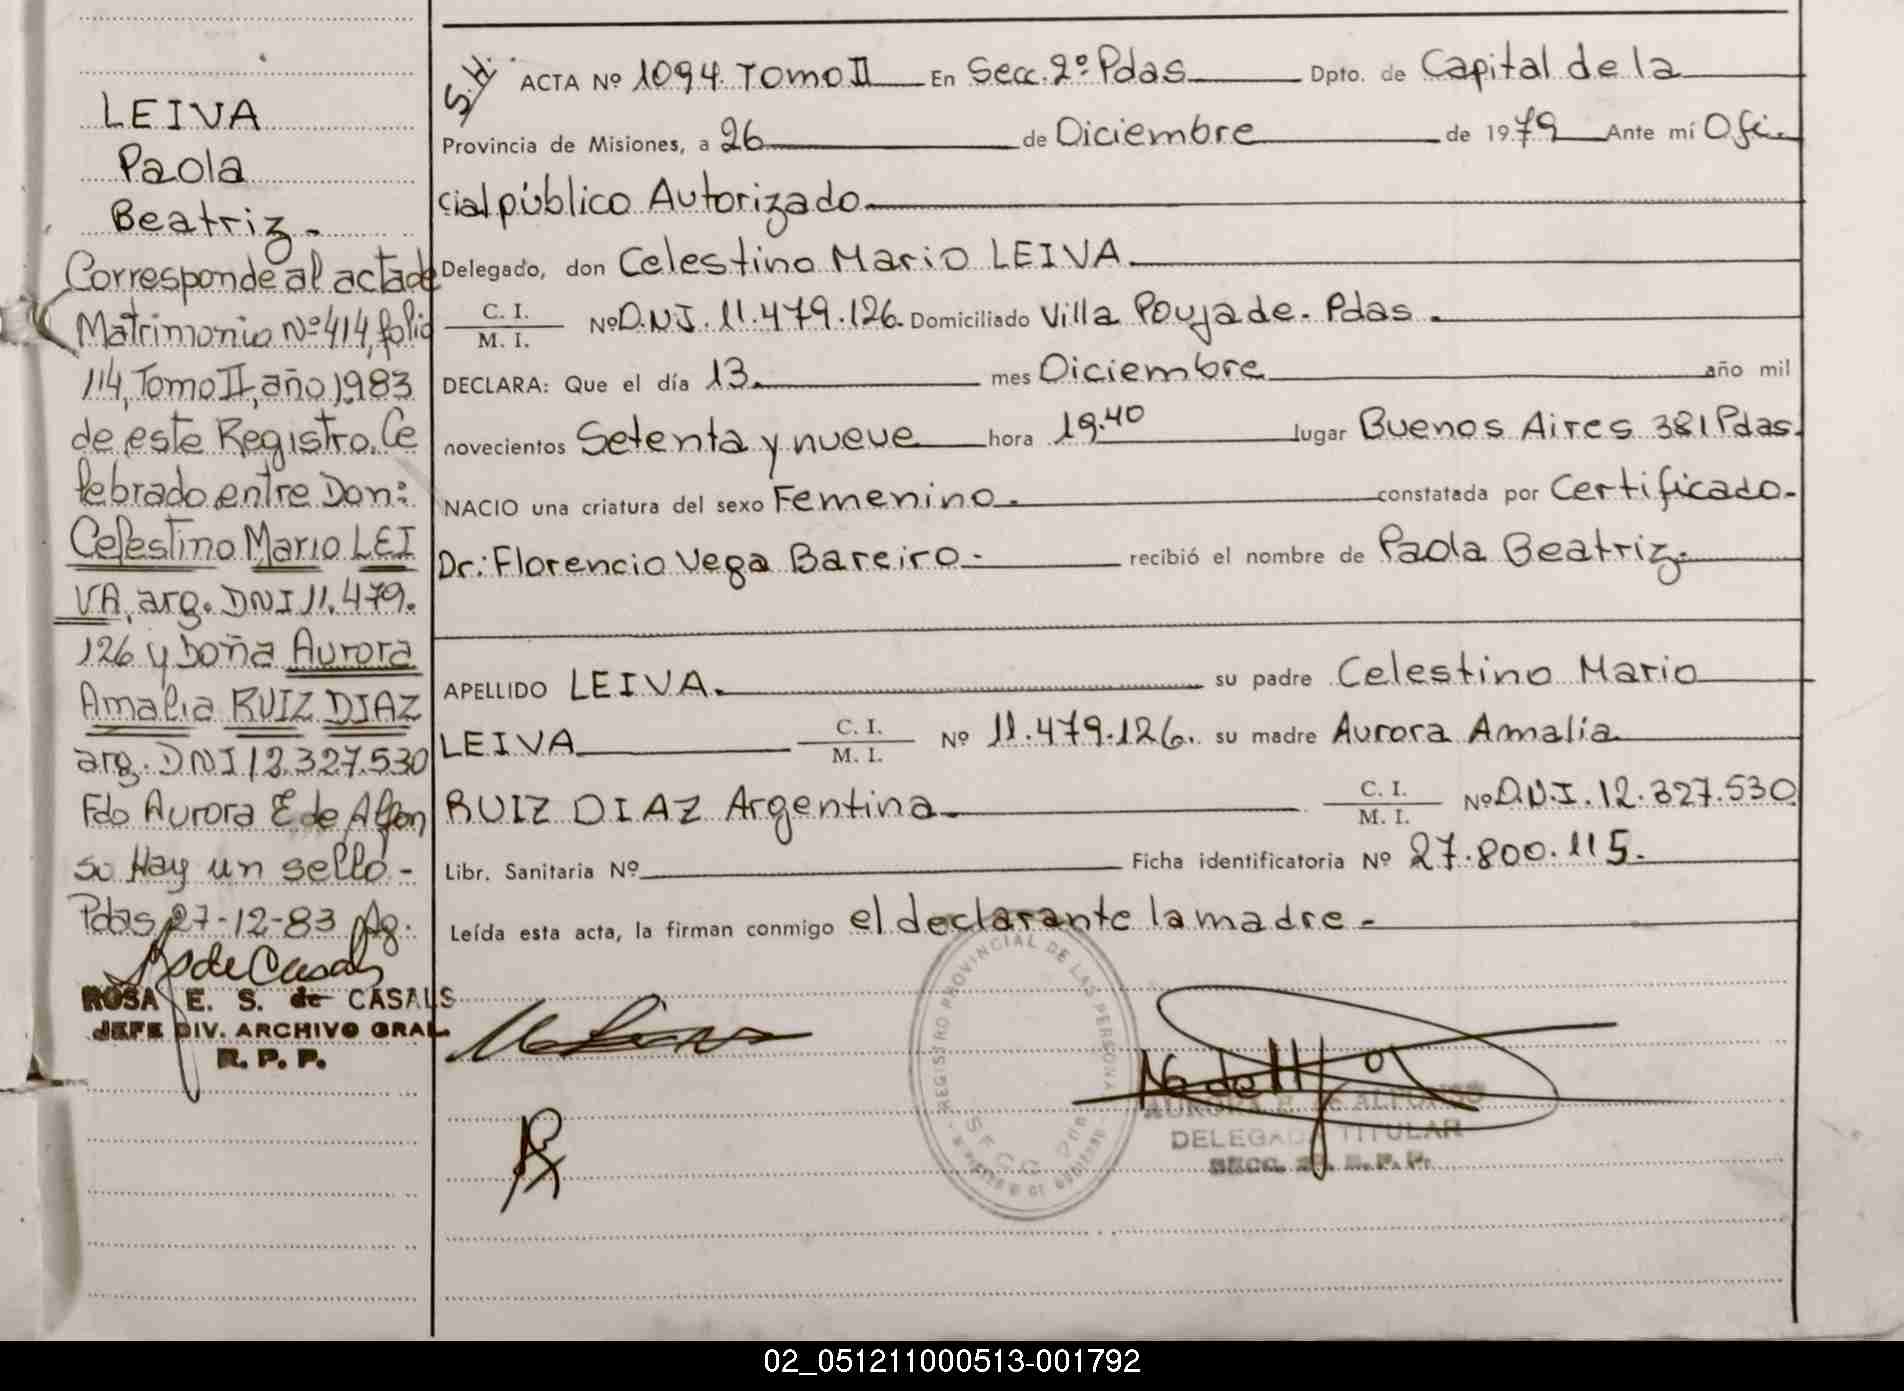 LEIVA
Paola
Beatriz.-
Corresponde al acta de
Matrimonio Nº 414, folio
114, Tomo II, año 1983
de este Registro. Ce
lebrado entre Don:
Celestino Mario LEI
VA, arg. DNI 11.479.
126 y Doña Aurora
Amalia RUIZ DIAZ
arg. DNI 12.327.530
Fdo Aurora E de Alfon
so Hay un sello -
Pdas 27-12-83 Ag.
ROSA E. S. de CASALS
JEFE DIV. ARCHIVO GRAL
R. P. P.
S.H. ACTA Nº 1094 Tomo II En Secc. 2º Pdas Dpto. de Capital de la
Provincia de Misiones, a 26 de Diciembre de 1979 Ante mí Ofi-
cial público Autorizado
Delegado, don Celestino Mario LEIVA
C. I.
M. I. Nº D.N.I. 11.479.126. Domiciliado Villa Poujade. Pdas.
DECLARA: Que el día 13. mes Diciembre año mil
novecientos Setenta y nueve hora 19.40 lugar Buenos Aires 381 Pdas.
NACIO una criatura del sexo Femenino. constatada por Certificado.
Dr: Florencio Vega Bareiro.- recibió el nombre de Paola Beatriz.
APELLIDO LEIVA. su padre Celestino Mario
LEIVA C. I. M. I. Nº 11.479.126. su madre Aurora Amalia
RUIZ DIAZ Argentina C. I. M. I. Nº D.N.I. 12.327.530
Libr. Sanitaria Nº Ficha identificatoria Nº 27.800.115.
Leída esta acta, la firman conmigo el declarante la madre.-
REGISTRO PROVINCIAL DE LAS PERSONAS
SECC. 2da
AURORA E. de ALFONSO
DELEGADA TITULAR
SECC. 2ª. R. P. P.
02_051211000513-001792